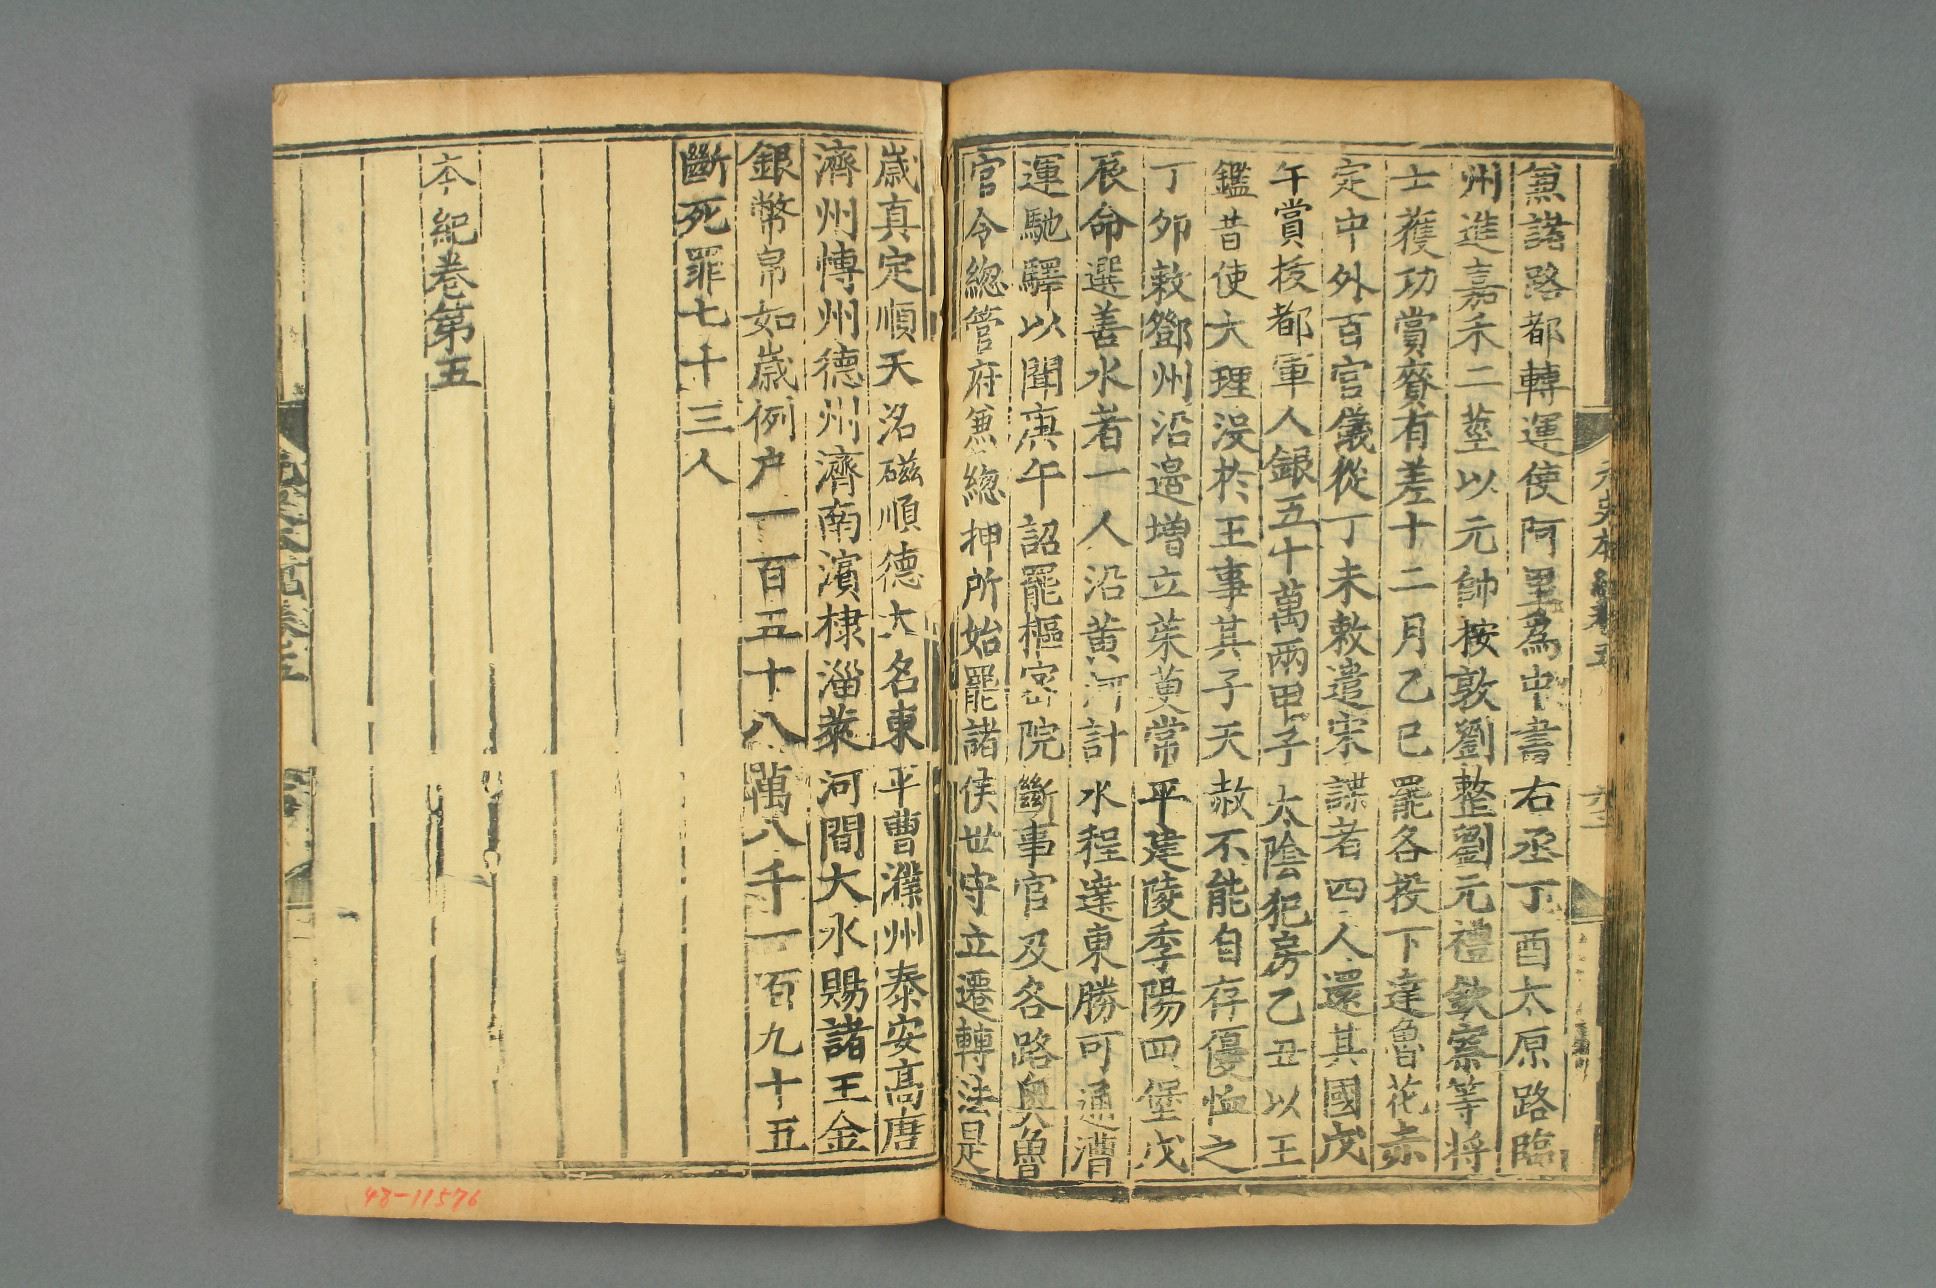 兼諸路都轉運使阿里爲中書右丞丁酉太原路臨
州進嘉禾二莖以元帥按敦劉整劉元禮欽察等將
士獲功賞賚有差十二月乙巳罷各投下達魯花赤
定中外百官儀從丁未敕遣宋諜者四人還其國戊
午賞拔都軍人銀五十萬兩甲子太陰犯房乙丑以王
鑑昔使大理沒於王事其子天赦不能自存優恤之
丁夘敕鄧州沿邉增立茱萸常平建陵季陽四堡戊
辰命選善水者一人沿黄河計水程達東勝可通漕
運馳驛以聞庚午詔罷樞宻院斷事官及各路奥魯
官令緫管府兼緫押所始罷諸侯世守立遷轉法是
元史本紀卷五
歲真定順天洺磁順德大名東平曹濮州泰安髙唐
濟州博州德州濟南濵棣淄萊河間大水賜諸王金
銀幣帛如歲例户一百五十八萬八千一百九十五
斷死罪七十三人
本紀卷第五
48-11576